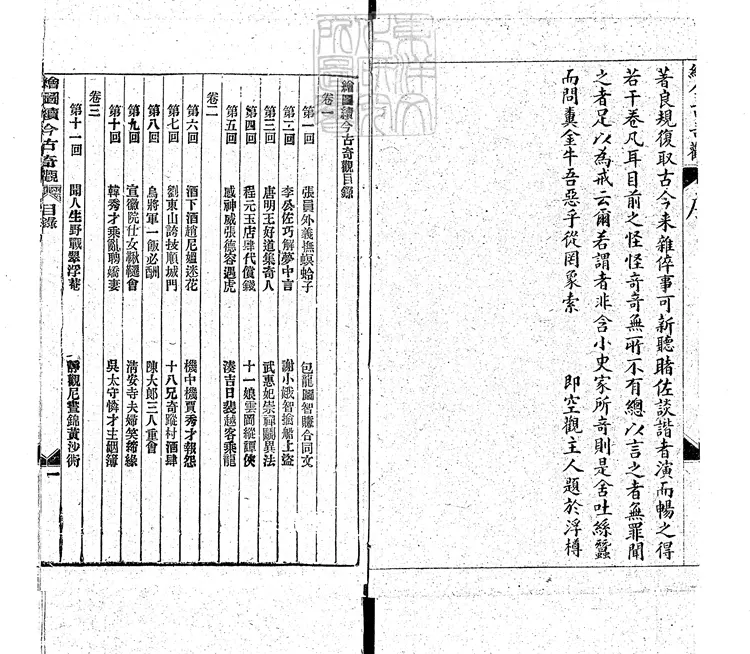 著良規復取古今来雜倅事可新聽睹佐談諧者演而暢之得
若干卷凡耳目前之怪怪奇奇無所不有總以言之者無罪聞
之者足以為戒云爾若謂者非含小史家所奇則是舍吐絲蠶
而問糞金牛吾惡乎從罔象索
即空觀主人題於浮樽
序
繪圖續今古奇觀目錄
卷一
第一回 張員外義撫螟蛉子 包龍圖智賺合同文
第二回 李公佐巧解夢中言 謝小娥智擒船上盜
第三回 唐明王好道集奇人 武惠妃崇禪鬬異法
第四回 程元玉店肆代償錢 十一娘雲岡縱譚俠
第五回 感神威張德容遇虎 湊吉日裴越客乘龍
卷二
第六回 酒下酒趙尼媼迷花 機中機賈秀才報怨
第七回 劉東山誇技順城門 十八兄奇蹤村酒肆
第八回 烏將軍一飯必酬 陳大郎三人重會
第九回 宣徽院仕女鞦韆會 清安寺夫婦笑啼緣
第十回 韓秀才乘亂聘嬌妻 吳太守憐才主姻簿
卷三
第十一回 聞人生野戰翠浮菴 靜觀尼晝錦黃沙衖
繪圖續今古奇觀
目錄
一